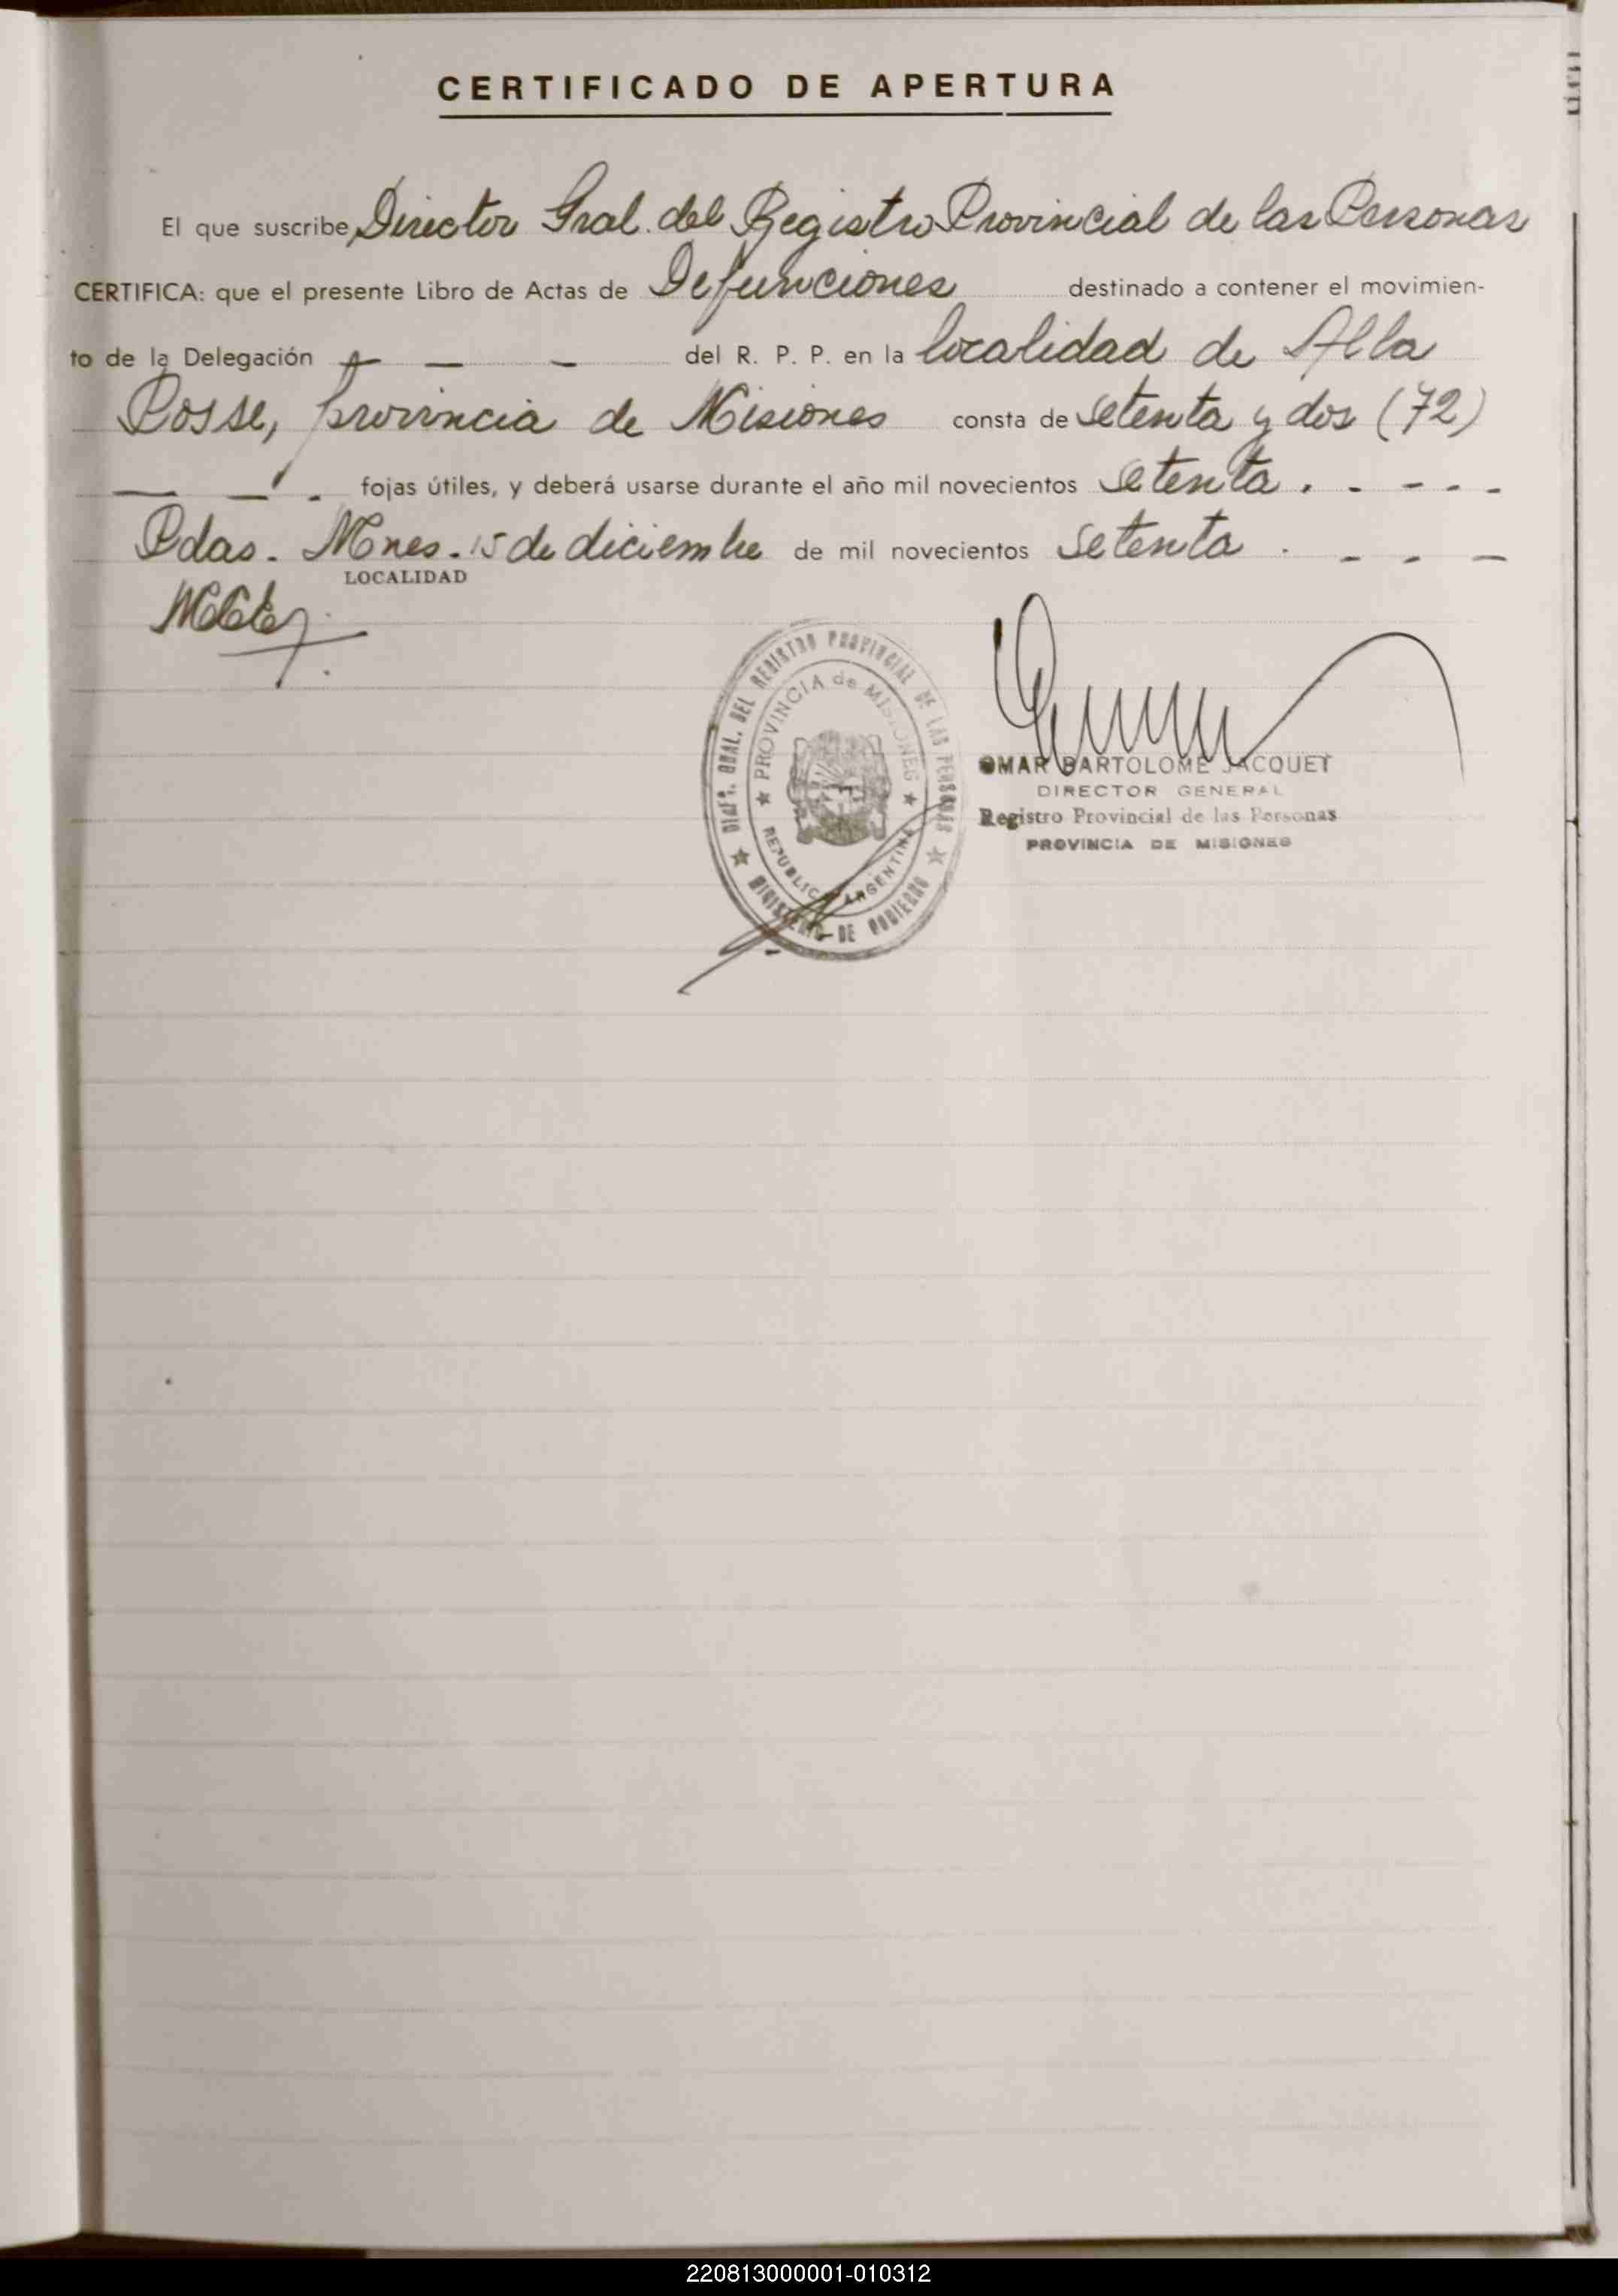 CERTIFICADO DE APERTURA
El que suscribe Director Gral. del Registro Provincial de las Personas
CERTIFICA: que el presente Libro de Actas de Defunciones destinado a contener el movimien-
to de la Delegación — — — del R. P. P. en la localidad de Alba
Posse, provincia de Misiones consta de setenta y dos (72)
— — . fojas útiles, y deberá usarse durante el año mil novecientos setenta . - - - -
Pdas. Mnes. 15 de diciembre de mil novecientos setenta . - - -
LOCALIDAD
DIREC. GRAL. DEL REGISTRO PROVINCIAL DE LAS PERSONAS
PROVINCIA de MISIONES
REPUBLICA ARGENTINA
MINISTERIO DE GOBIERNO
OMAR BARTOLOME JACQUET
DIRECTOR GENERAL
Registro Provincial de las Personas
PROVINCIA DE MISIONES
220813000001-010312